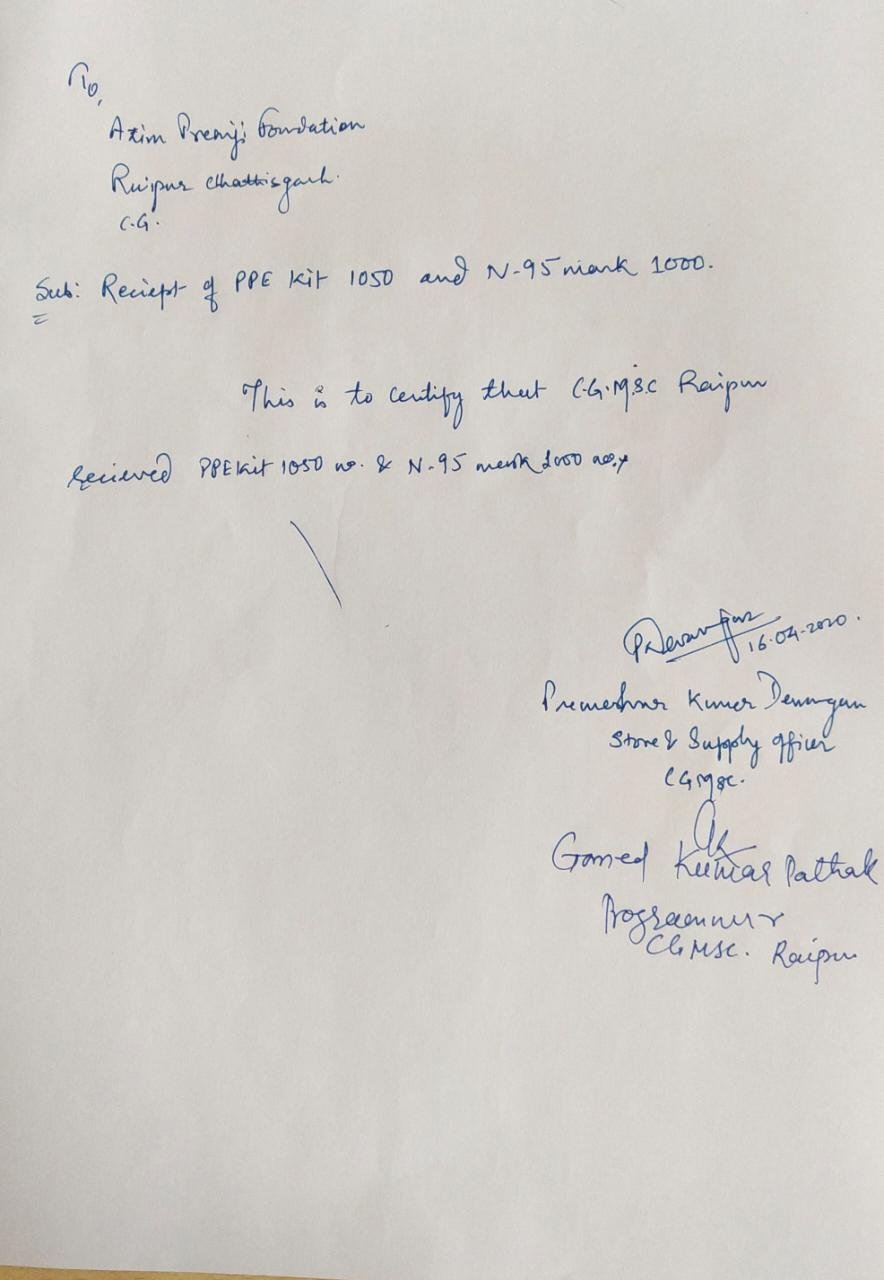 To,
Azim Premji Foundation
Raipur Chhattisgarh.
C.G.
Sub: Reciept of PPE Kit 1050 and N-95 mask 1000.
This is to certify that C.G.M.S.C Raipur
recieved PPE Kit 1050 no. & N-95 mask 1000 nos.
PDewangan 16-04-2020.
Premeshwar Kumar Dewangan
Store & Supply officer
CGMSC.
Kumar Pathak
Programmer
CGMSC. Raipur